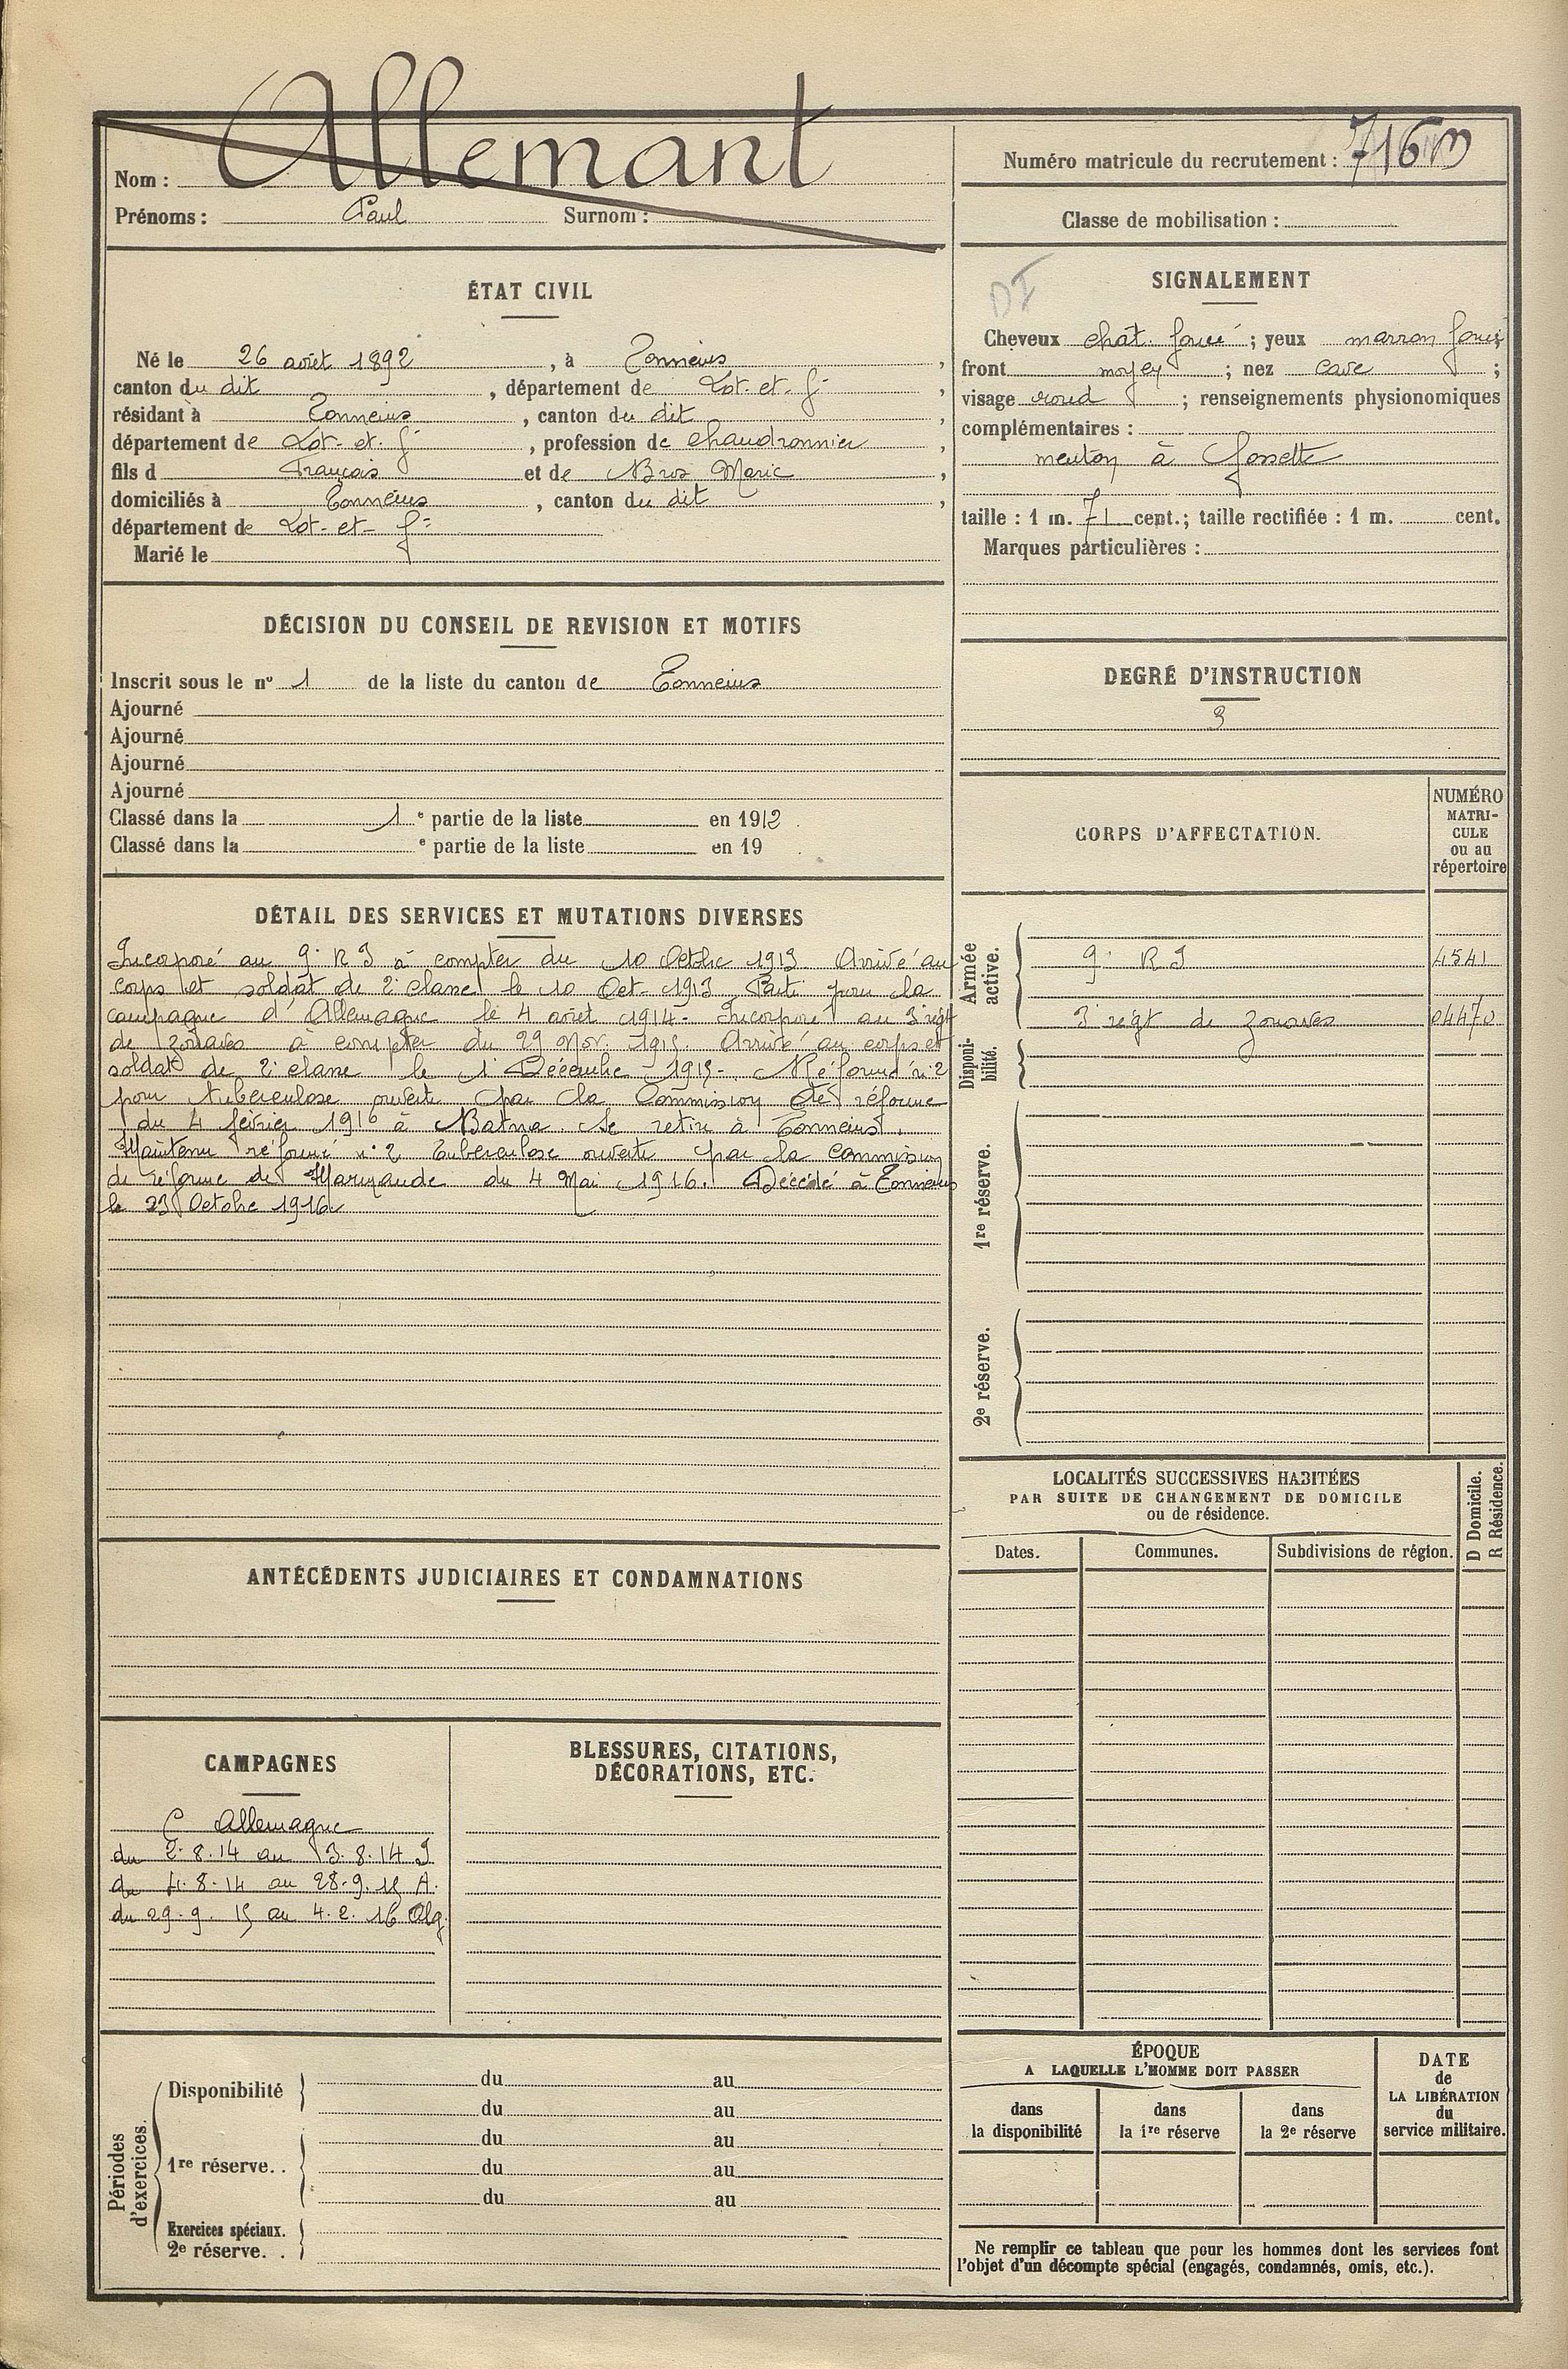 Nom : Allemant
Prénoms : Paul Surnom :
ÉTAT CIVIL
Né le 26 août 1892, à Tonneins,
canton du dit, département de Lot-et-G.,
résidant à Tonneins, canton du dit,
département de Lot-et-G., profession de chaudronnier,
fils d François et de Bros Marie,
domiciliés à Tonneins, canton du dit,
département de Lot-et-G.
Marié le
DÉCISION DU CONSEIL DE REVISION ET MOTIFS
Inscrit sous le n° 1 de la liste du canton de Tonneins
Ajourné
Ajourné
Ajourné
Ajourné
Classé dans la 1e partie de la liste en 1912
Classé dans la e partie de la liste en 19
DÉTAIL DES SERVICES ET MUTATIONS DIVERSES
Incorporé au 9e R I à compter du 10 Octbre 1913. Arrivé au
corps et soldat de 2e classe le 10 Oct. 1913. Parti pour la
campagne d'Allemagne le 4 août 1914. Incorporé au 3 regt
de zouaves à compter du 29 Nov. 1915. Arrivé au corps et
soldat de 2e classe le 1er Décembre 1915. Réformé n° 2
pour tuberculose ouverte par la Commission de réforme
du 4 février 1916 à Batna. Se retire à Tonneins.
Maintenu réformé n° 2 Tuberculose ouverte par la commission
de réforme de Marmande du 4 Mai 1916. Décédé à Tonneins
le 23 Octobre 1916.
ANTÉCÉDENTS JUDICIAIRES ET CONDAMNATIONS
CAMPAGNES
C Allemagne
du 2.8.14 au 3.8.14 I
du 4.8.14 au 28.9.15 A.
du 29.9.15 au 4.2.16 Alg.
BLESSURES, CITATIONS,
DÉCORATIONS, ETC.
Périodes
d'exercices.
Disponibilité du au
du au
1re réserve. . du au
du au
du au
Exercices spéciaux.
2e réserve. .
Numéro matricule du recrutement : 716 M
Classe de mobilisation :
DI
SIGNALEMENT
Cheveux chat. foncé ; yeux marron foncé ;
front moyen ; nez cave ;
visage rond ; renseignements physionomiques
complémentaires :
menton à fossette
taille : 1 m. 71 cent. ; taille rectifiée : 1 m. cent.
Marques particulières :
DEGRÉ D'INSTRUCTION
3
CORPS D'AFFECTATION.
NUMÉRO
MATRI-
CULE
ou au
répertoire
Armée
active.
9e R I 4541
3 regt de zouaves 04470
Disponi-
bilité.
1re réserve.
2e réserve.
LOCALITÉS SUCCESSIVES HABITÉES
PAR SUITE DE CHANGEMENT DE DOMICILE
ou de résidence.
D Domicile.
R Résidence.
Dates. Communes. Subdivisions de région.
ÉPOQUE
A LAQUELLE L'HOMME DOIT PASSER
dans
la disponibilité
dans
la 1re réserve
dans
la 2e réserve
DATE
de
LA LIBÉRATION
du
service militaire.
Ne remplir ce tableau que pour les hommes dont les services font
l'objet d'un décompte spécial (engagés, condamnés, omis, etc.).